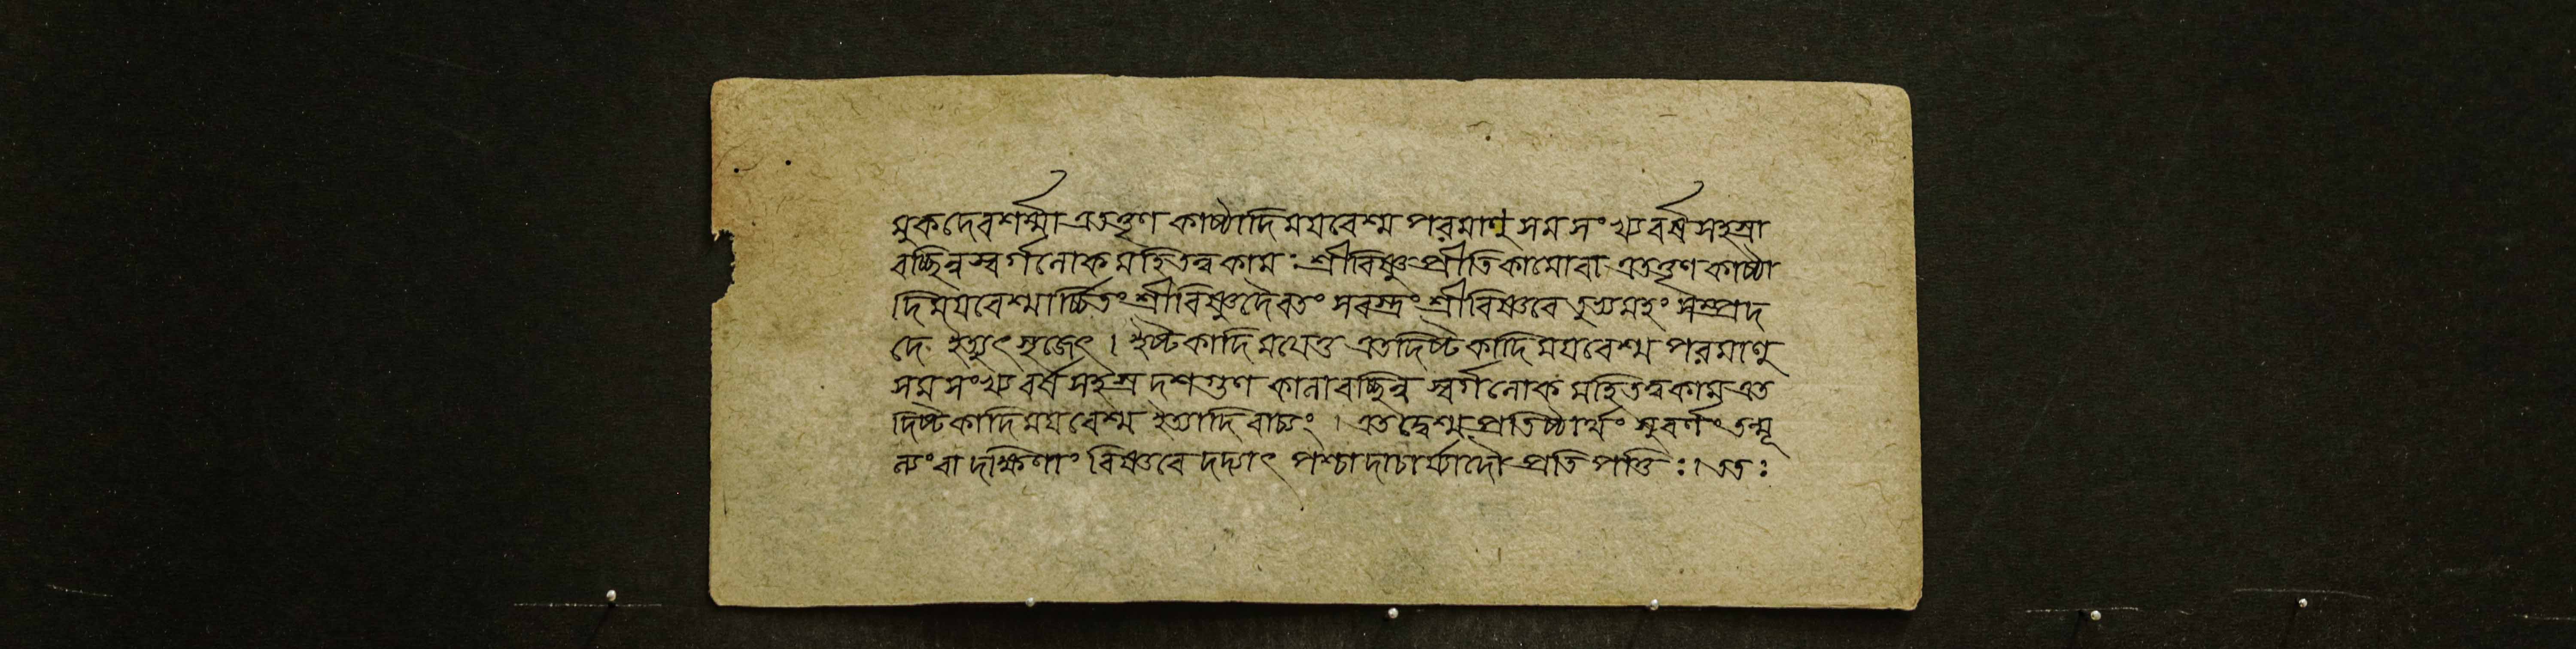 মুকদেবশর্ম্মা এতত্তৃণ কাষ্ঠাদিময়বেশ্ম পরমাণু সম সংখ্য বর্ষসহস্রা
বচ্ছিন্ন স্বর্গলোক মহিতত্ব কামঃ শ্রীবিষ্ণুপ্রীতিকামোবা এতত্তৃণ কাষ্ঠা
দিময়বেশ্মার্চ্চিতং শ্রীবিষ্ণুদৈবতং সবস্ত্রং শ্রীবিষ্ণবে তুভ্যমহং সম্প্রদ
দে ইত্যুৎসৃজেৎ । ইষ্টকাদিময়েতু এতদিষ্টকাদিময়বেশ্ম পরমাণু
সম সংখ্য বর্ষ সহস্র দশগুণ কালাবচ্ছিন্ন স্বর্গলোক মহিতত্বকাম এত
দিষ্টকাদিময়বেশ্ম ইত্যাদি বাচ্যং । এতদ্বেশ্ম প্রতিষ্ঠার্থং সুবর্ণং তন্মূ
ল্যং বা দক্ষিণাং বিষ্ণবে দদ্যাৎ পশ্চাদাচার্য্যাদৌ প্রতিপত্তিঃ । ততঃ